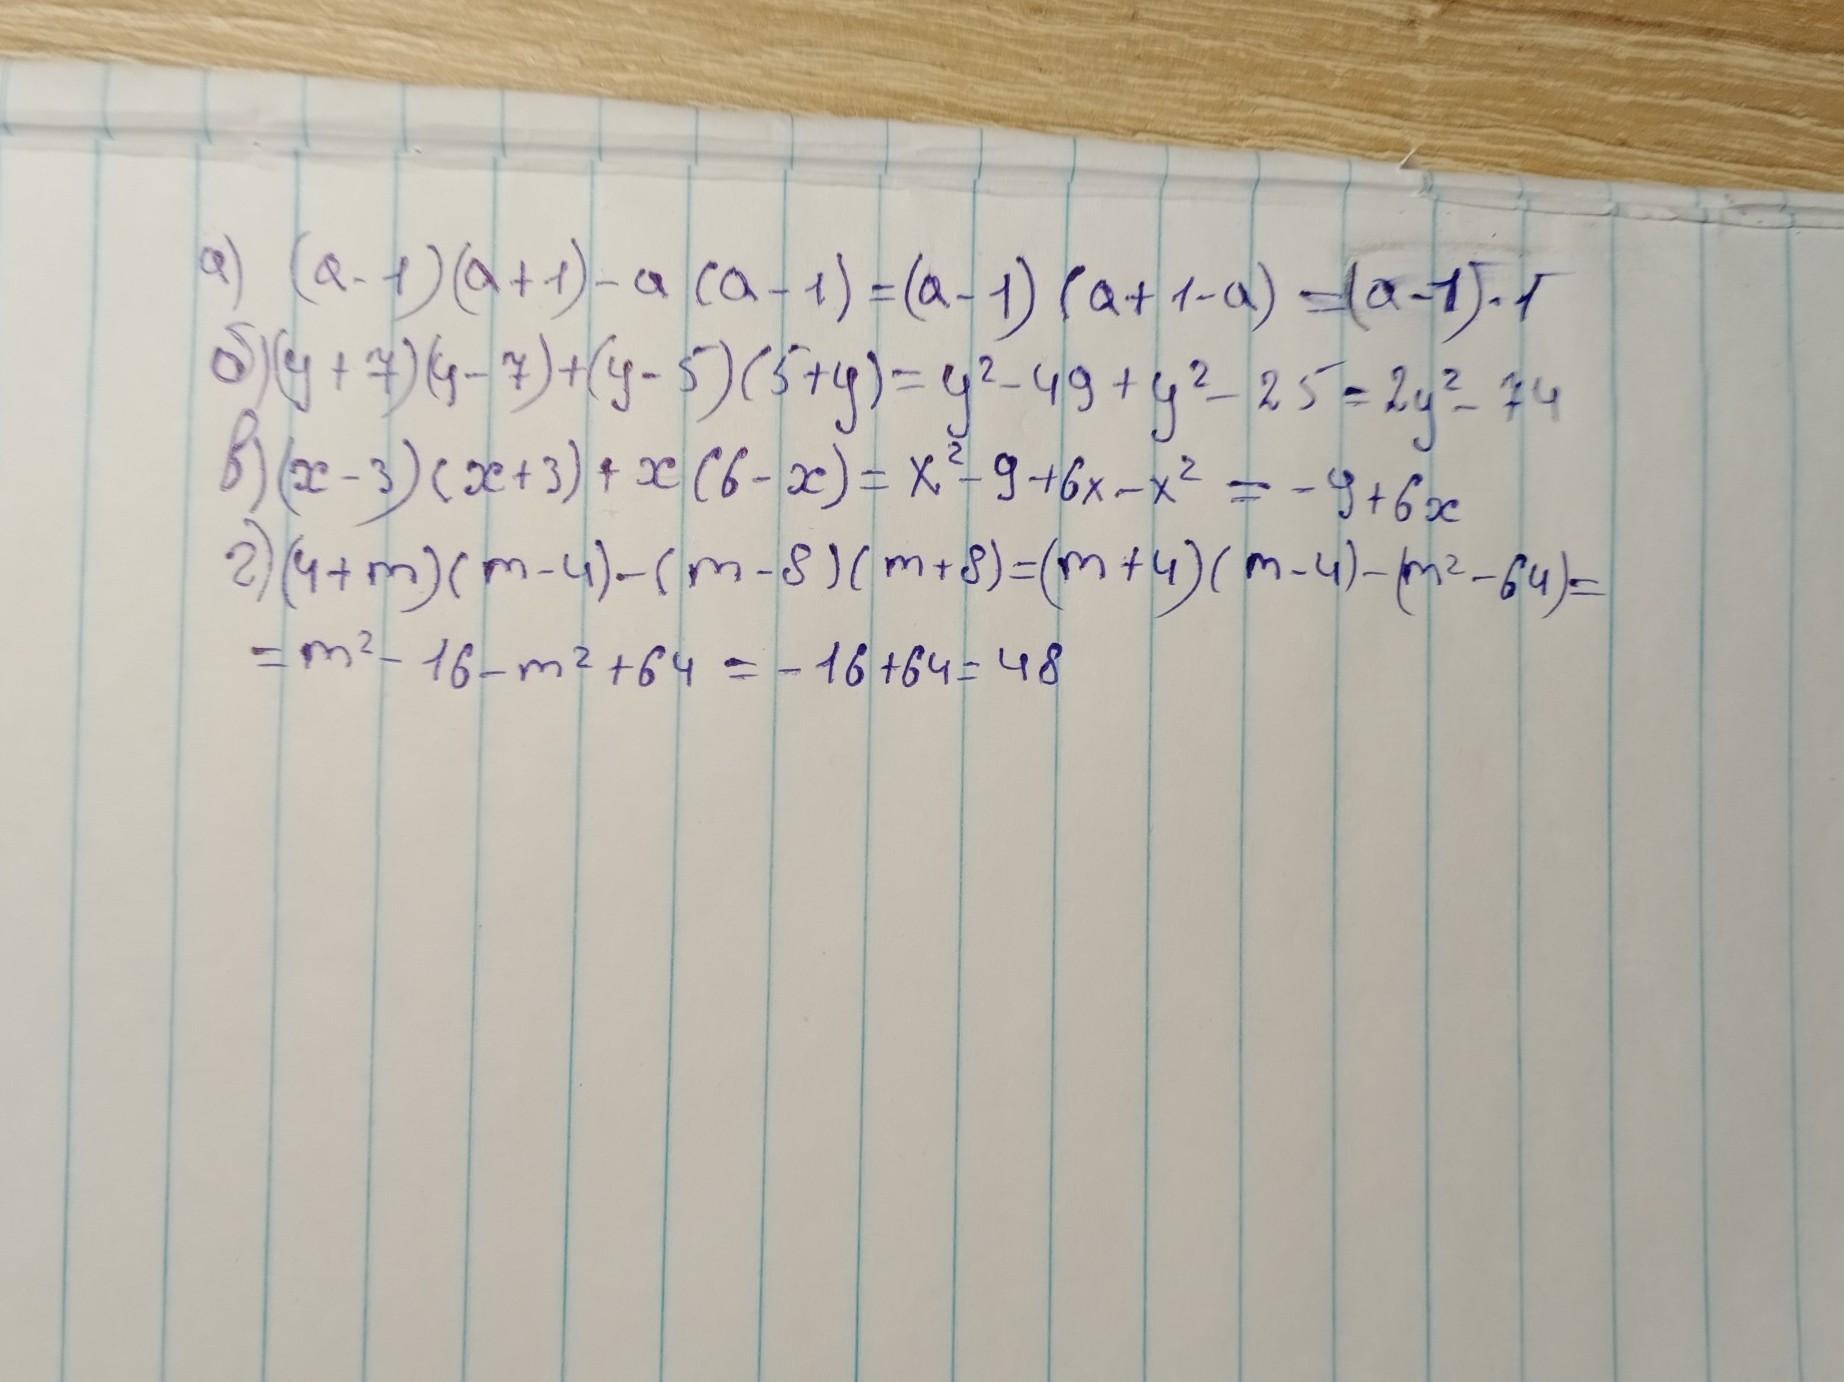 а) (a-1)(a+1)-a(a-1)=(a-1)(a+1-a)=(a-1)·1
б) (y+7)(y-7)+(y-5)(5+y)=y²-49+y²-25=2y²-74
в) (x-3)(x+3)+x(6-x)=x²-9+6x-x²=-9+6x
г) (4+m)(m-4)-(m-8)(m+8)=(m+4)(m-4)-(m²-64)=
=m²-16-m²+64=-16+64=48